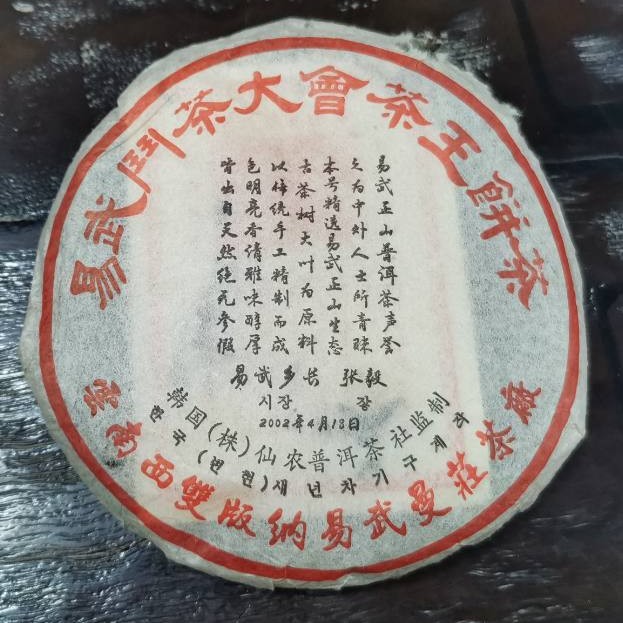 易武鬥茶大會茶王餅茶
易武正山普洱茶声誉
久为中外人士所青睐
本号精选易武正山生态
古茶树大叶为原料
以传统手工精制而成
色明亮香清雅味醇厚
皆出自天然绝无参假
易武乡长 张毅
시장 장
2002年4月18日
韩国(株)仙农普洱茶社监制
한국
雲南西雙版纳易武曼莊茶廠